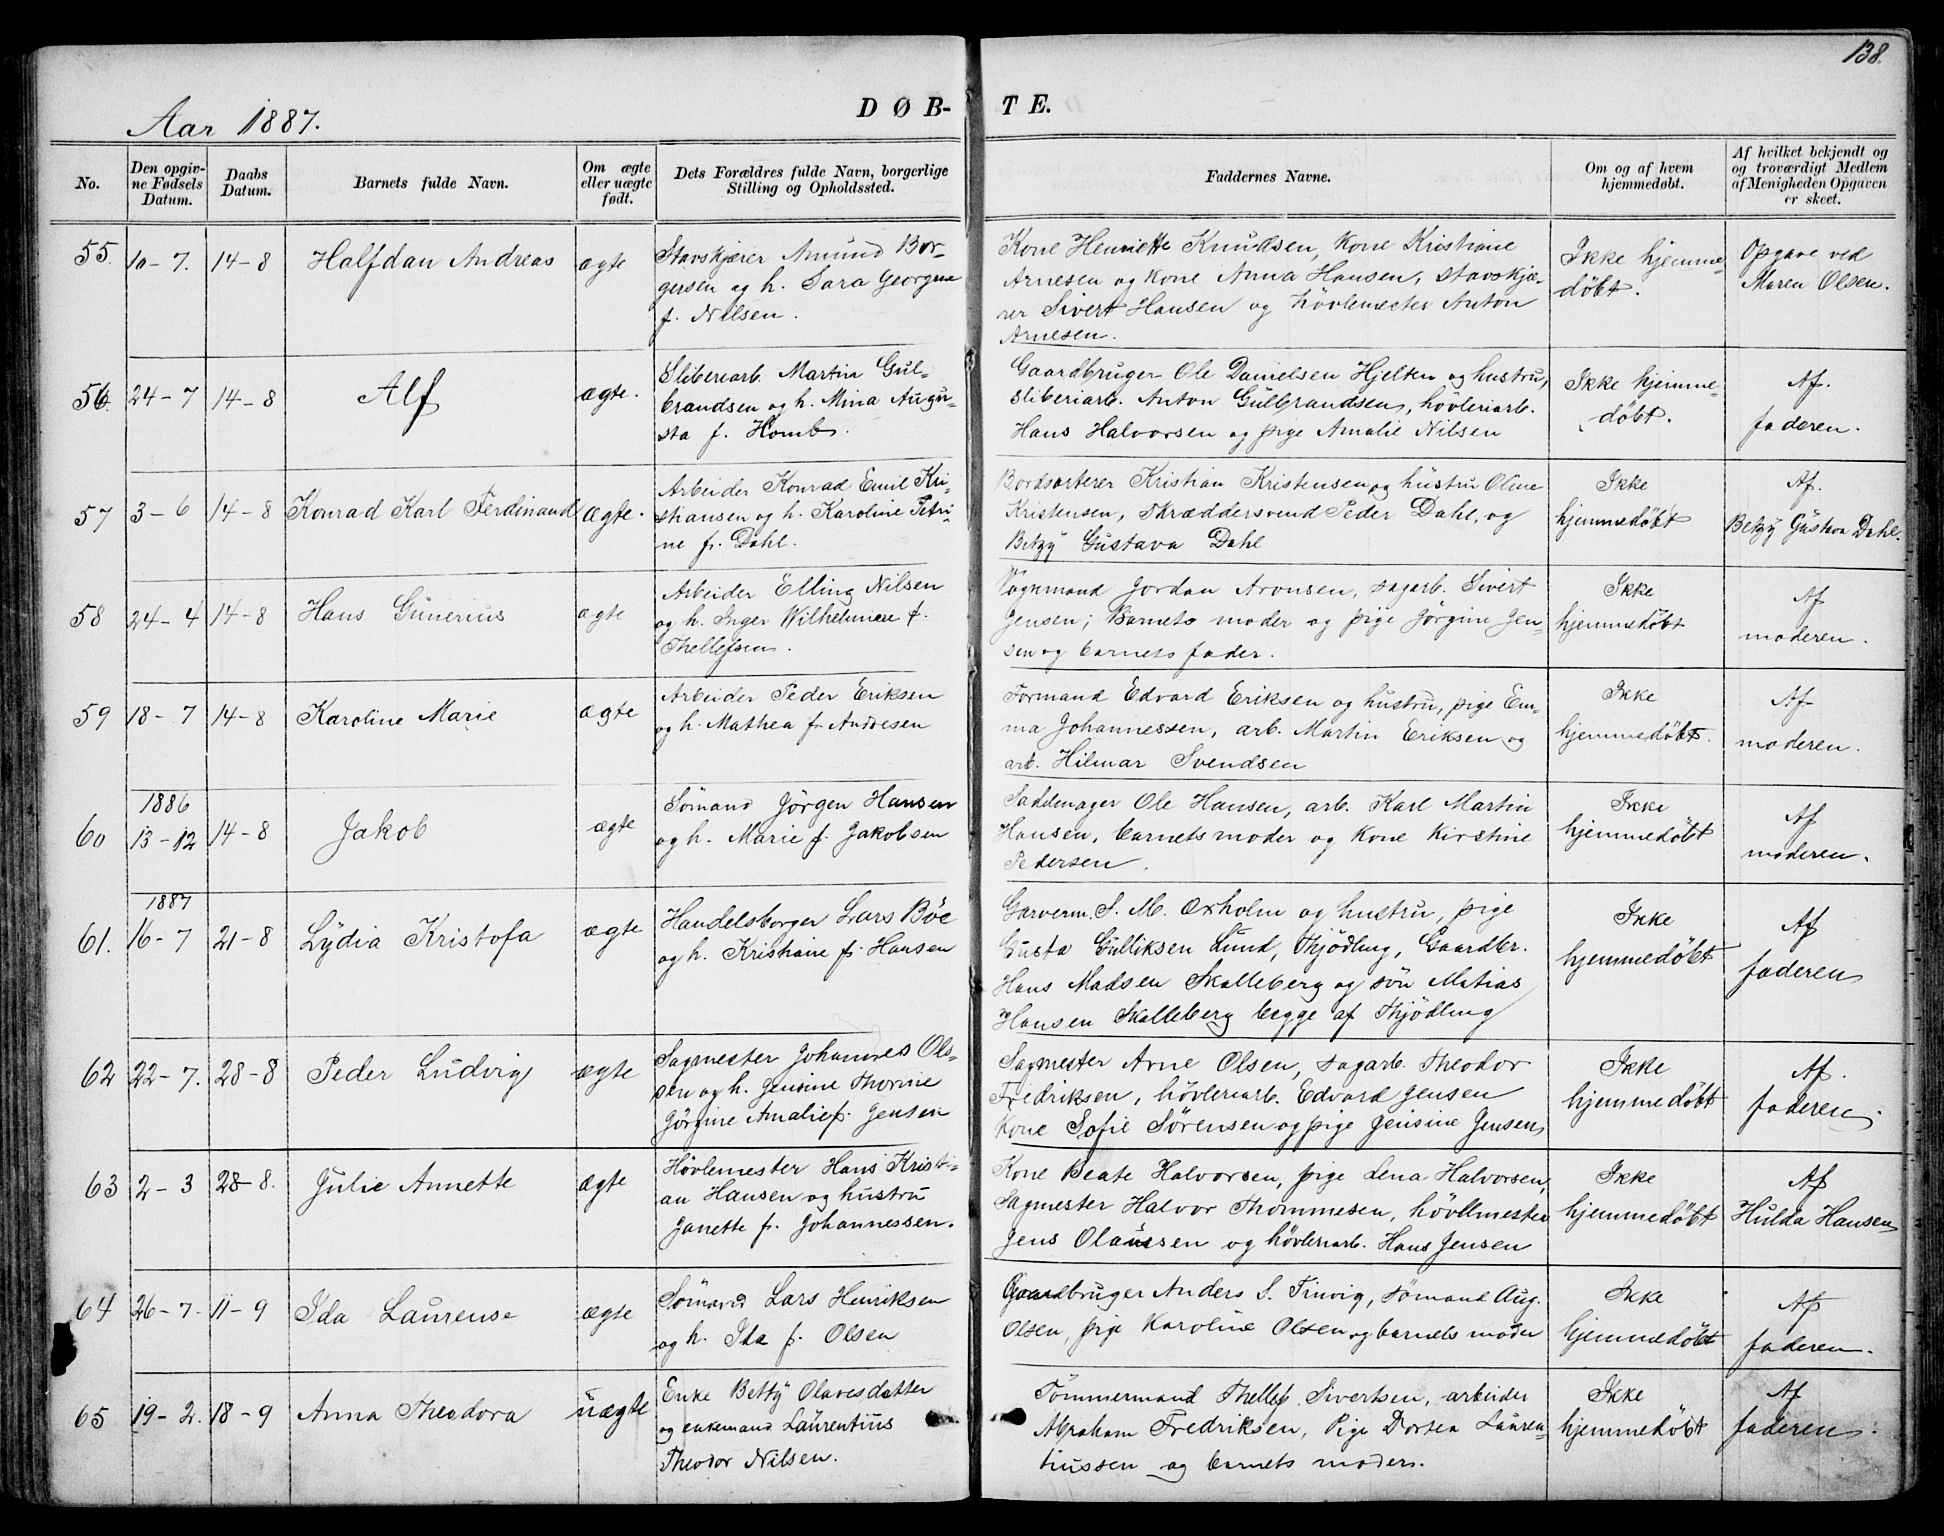 138.
Aar 1887.
DØB-
TE.
No.
Den opgiv-
ne Fødsels
Datum.
Daabs
Datum.
Barnets fulde Navn.
Om ægte
eller uægte
født.
Dets Forældres fulde Navn, borgerlige
Stilling og Opholdssted.
Faddernes Navne.
Om og af hvem
hjemmedøbt.
Af hvilket bekjendt og
og troværdigt Medlem
af Menigheden Opgaven
er skeet.
55.
10-7.
14-8
Halfdan Andreas
ægte
Stavskjærer Amund Bor-
gersen og h. Sara Georgine
f. Nilsen.
Kone Henriette Knudsen, Kone Kristiane
Arnesen og Kone Anna Hansen, stavskjæ-
rer Sivert Hansen og høvlemester Anton
Arnesen.
Ikke hjemme-
døbt.
Opgave ved
Maren Olsen.
56.
24-7
14-8
Alf
ægte.
Sliberiarb. Martin Gul-
brandsen og h. Mina Augu-
sta f. Homb.
Gaardbruger Ole Danielsen Hjelten og hustru,
sliberiarb. Anton Gulbrandsen, høvleriarb.
Hans Halvorsen og pige Amalie Nilsen
Ikke hjemme-
døbt.
Af.
faderen.
57
3-6
14-8
Konrad Karl Ferdinand
ægte.
Arbeider Konrad Emil Kri-
stiansen og h. Karoline Petri-
ne f. Dahl.
Bordsorterer Kristian Kristensen og hustru Oline
Kristensen, Skræddersvend Peder Dahl, og
Betzy Gustava Dahl
Ikke
hjemmedøbt
Af.
Betzy Gustava Dahl.
58
24-4
14-8
Hans Gunerius
ægte
Arbeider Elling Nilsen
og h. Inger Wilhelmine f.
Thellefsen.
Vognmand Jordan Aronsen, sagarb. Sivert
Jensen; Barnets moder og pige Jørgine Jen-
sen og barnets fader.
Ikke
hjemmedøbt
Af
moderen.
59
18-7
14-8
Karoline Marie
ægte
Arbeider Peder Eriksen
og h. Mathea f. Andresen
Formand Edvard Eriksen og hustru, pige Em-
ma Johannessen, arb. Martin Eriksen og
arb. Hilmar Svendsen
Ikke
hjemmedøbt.
Af
moderen.
60
1886
13-12
14-8
Jakob
ægte
Sømand Jørgen Hansen
og h. Marie f. Jakobsen
Sadelmager Ole Hansen, arb. Karl Martin
Hansen, barnets moder og Kone Kirstine
Pedersen.
Ikke
hjemmedøbt
Af
moderen.
61.
1887
16-7
21-8
Lydia Kristofa
ægte
Handelsborger Lars Bøe
og h. Kristiane f. Hansen
Garverm. S. M. Oxholm og hustru, pige
Gusta Gulliksen Lund, Thjødling, Gaardbr.
Hans Madsen Skalleberg og søn Matias
Hansen Skalleberg begge af Thjødling
Ikke
hjemmedøbt
Af
faderen
62
22-7.
28-8
Peder Ludvig
ægte
Sagmester Johannes Ols-
sen og h. Jensine Thorine
Jørgine Amalie f. Jensen
Sagmester Arne Olsen, sagarb. Theodor
Fredriksen, høvleriarb. Edvard Jensen
Kone Sofie Sørensen og pige Jensine Jensen
Ikke
hjemmedøbt
Af.
faderen.
63
2-3
28-8.
Julie Annette
ægte
Høvlemester Hans Kristi-
an Hansen og hustru
Janette f. Johannessen.
Kone Beate Halvorsen, pige Lena Halvorsen,
Sagmester Halvor Thommesen, høvlmester
Jens Olaussen og høvleriarb. Hans Jensen
Ikke
hjemmedøbt
Af
Hulda Hansen
64
26-7.
11-9
Ida Laurense
ægte
Sømand Lars Henriksen
og h. Ida f. Olsen
Gaardbruger Anders S. Trivig, sømand Aug.
Olsen, pige Karoline Olsen og barnets moder
Ikke
hjemmedøbt
Af
faderen.
65
19-2.
18-9
Anna Theodora
uægte
Enke Betty Olavesdatter
og enkemand Laurentius
Theodor Nilsen.
Tømmermand Thellef Sivertsen, arbeider
Abraham Fredriksen, Pige Dortea Lauren-
tiussen og barnets moder.
Ikke
hjemmedøbt
Af
faderen.